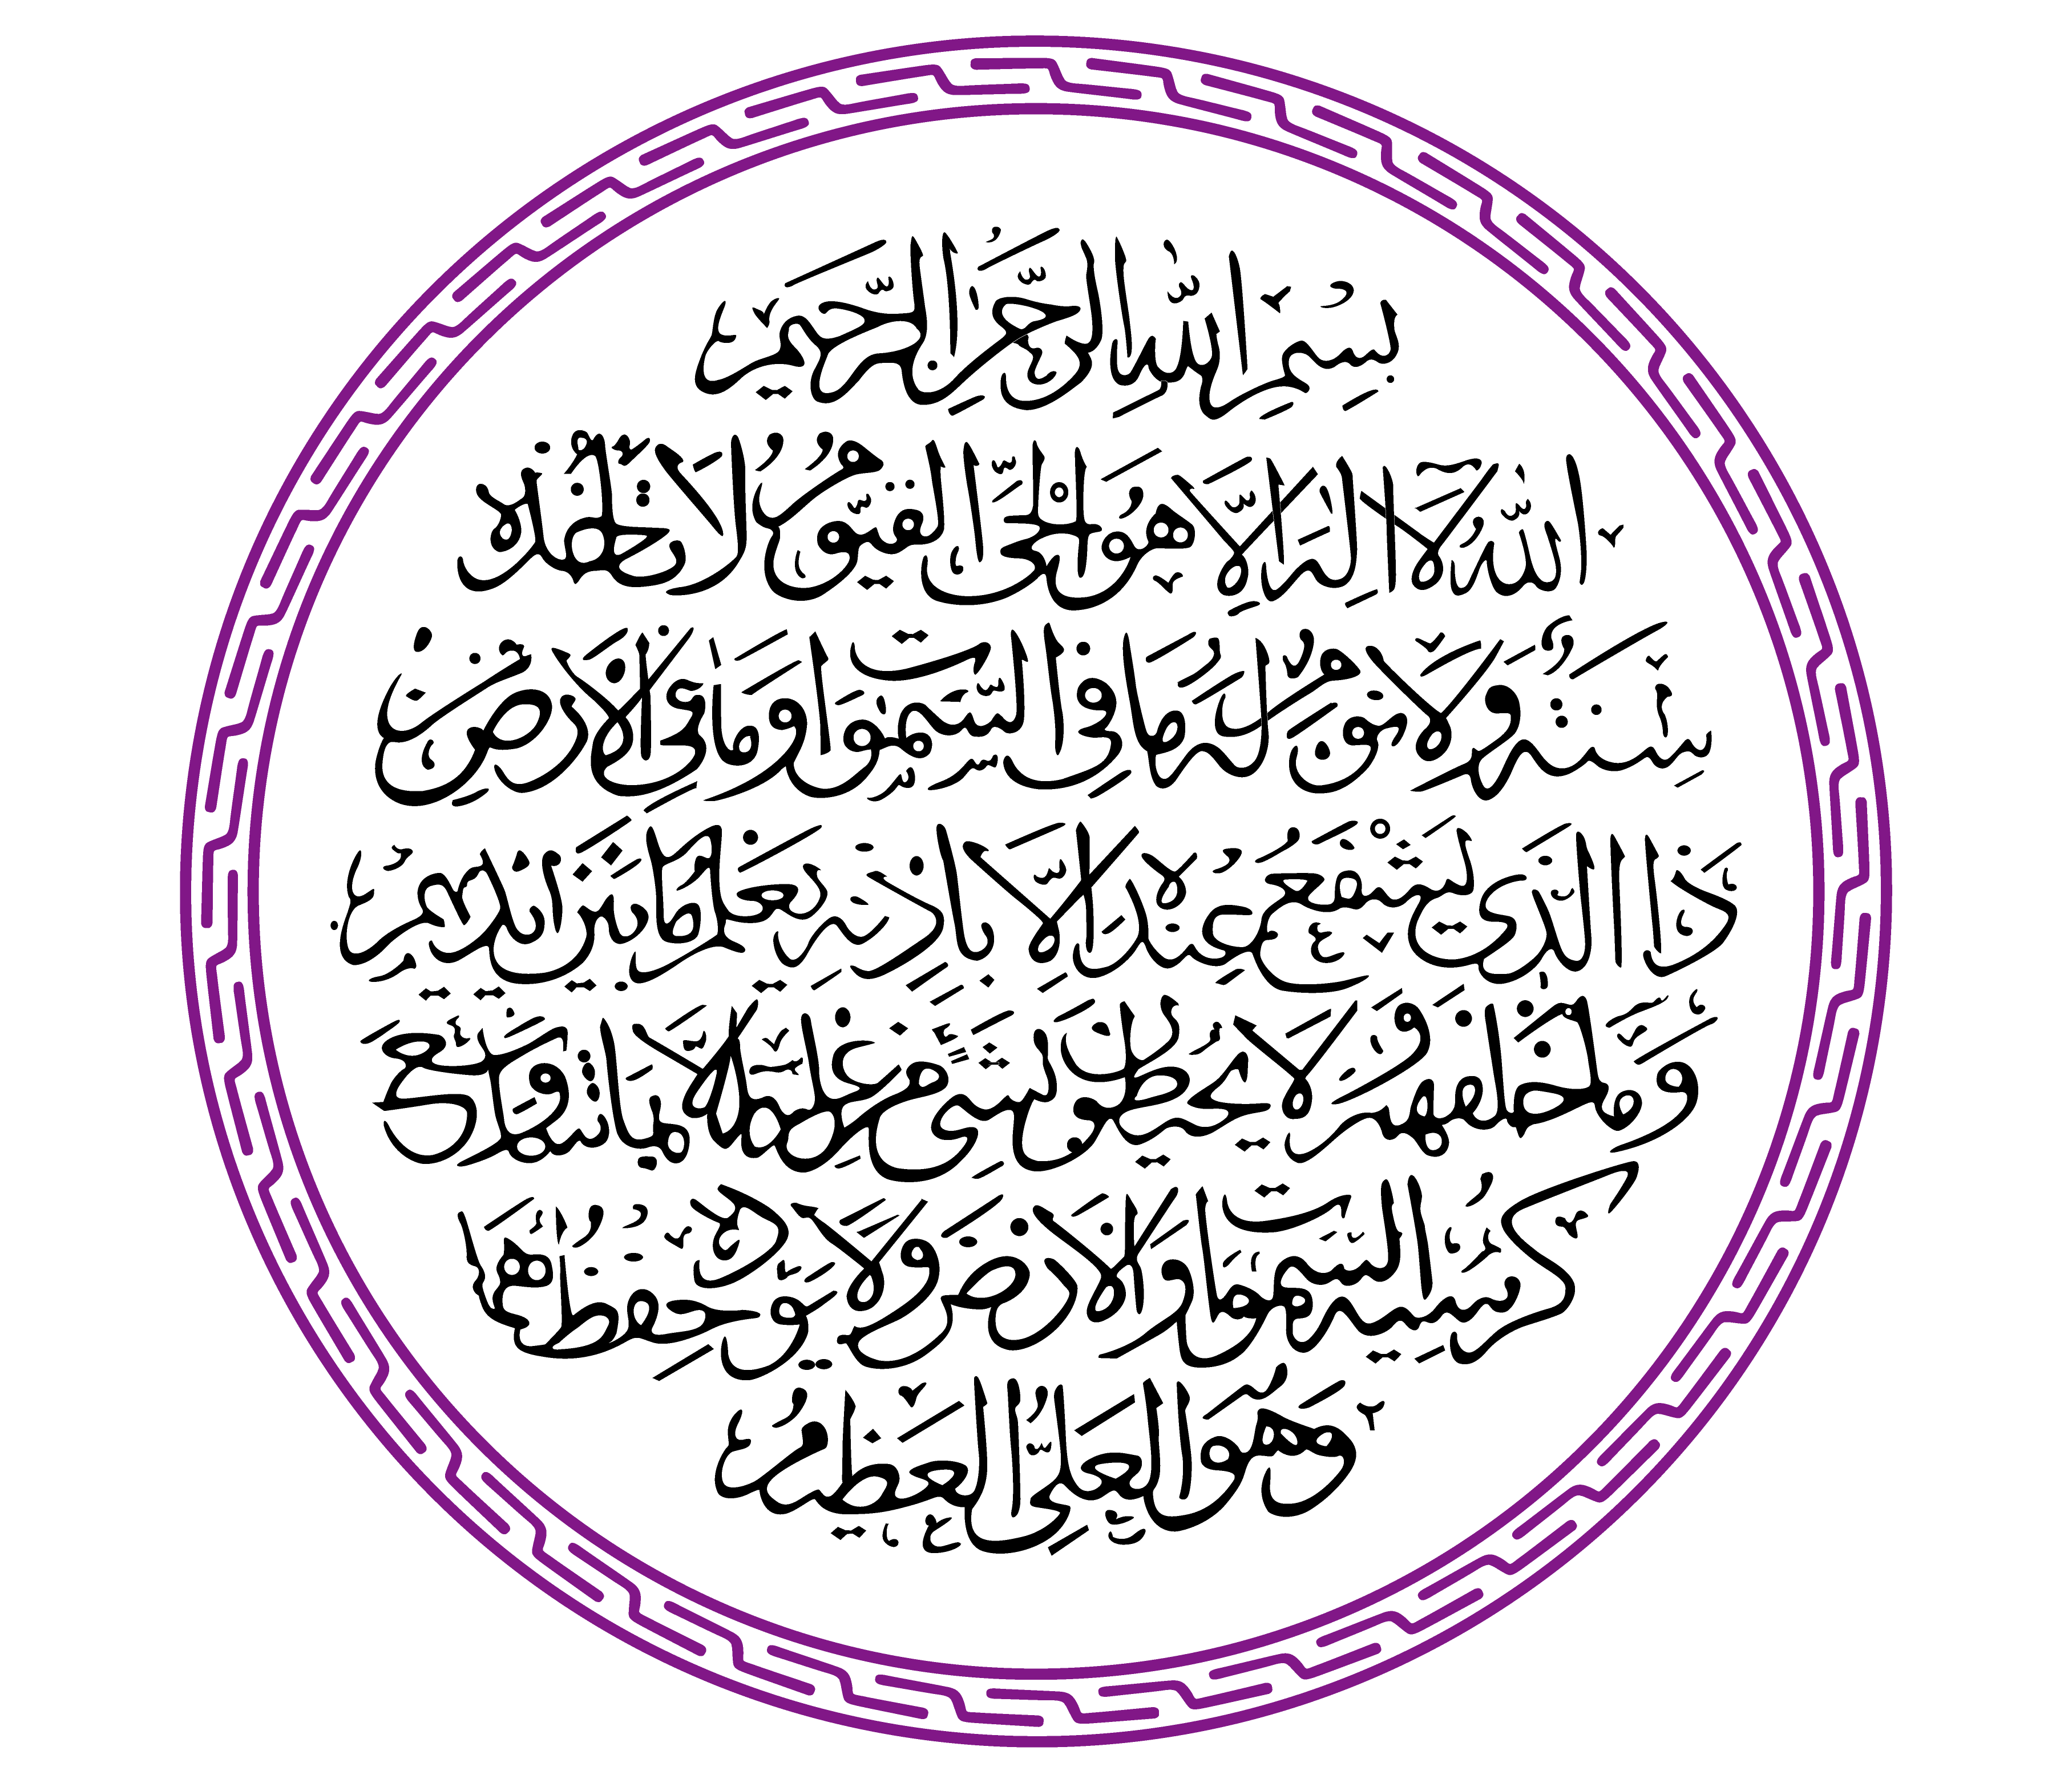 بِسْمِ اللّٰهِ الرَّحْمٰنِ الرَّحِيمِ
اللّٰهُ لَا إِلٰهَ إِلَّا هُوَ الْحَيُّ الْقَيُّومُ لَا تَأْخُذُهُ
سِنَةٌ وَلَا نَوْمٌ لَهُ مَا فِي السَّمٰوَاتِ وَمَا فِي الْأَرْضِ مَنْ
ذَا الَّذِي يَشْفَعُ عِنْدَهُ إِلَّا بِإِذْنِهِ يَعْلَمُ مَا بَيْنَ أَيْدِيهِمْ
وَمَا خَلْفَهُمْ وَلَا يُحِيطُونَ بِشَيْءٍ مِنْ عِلْمِهِ إِلَّا بِمَا شَاءَ وَسِعَ
كُرْسِيُّهُ السَّمٰوَاتِ وَالْأَرْضَ وَلَا يَئُودُهُ حِفْظُهُمَا
وَهُوَ الْعَلِيُّ الْعَظِيمُ